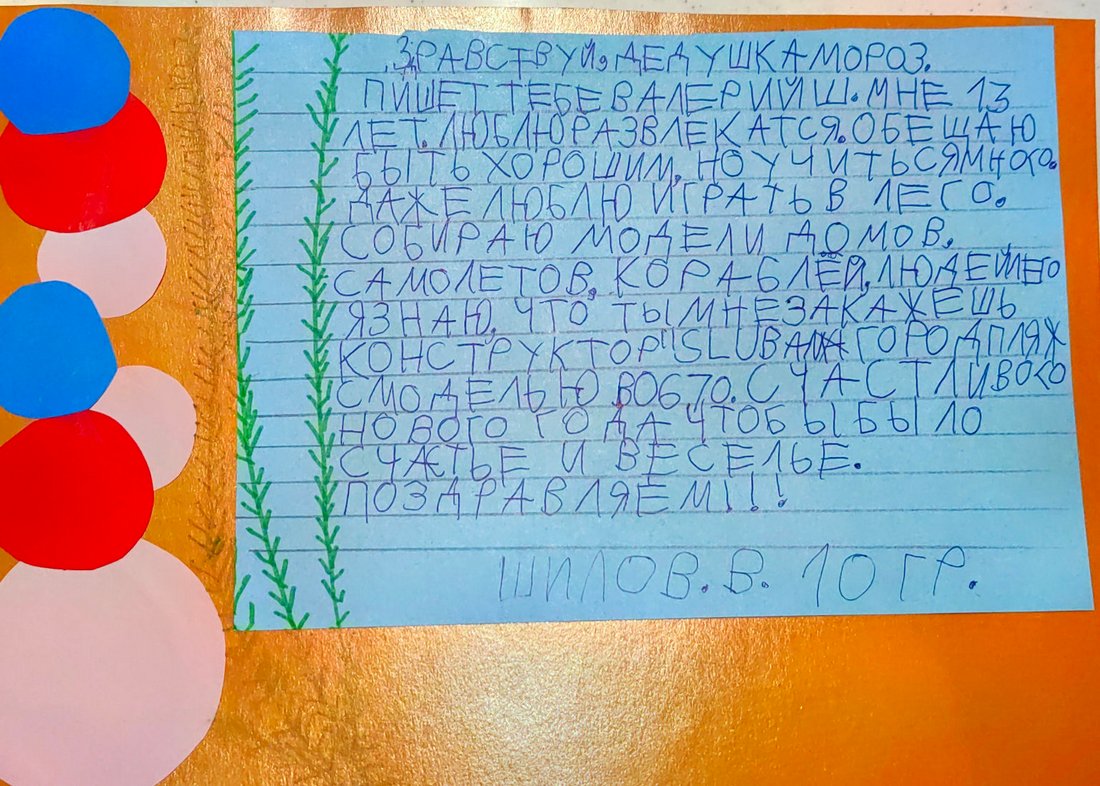 ЗДРАВСТВУЙ, ДЕДУШКА МОРОЗ.
ПИШЕТ ТЕБЕ ВАЛЕРИЙ Ш. МНЕ 13
ЛЕТ. ЛЮБЛЮ РАЗВЛЕКАТСЯ. ОБЕЩАЮ
БЫТЬ ХОРОШИМ, НО УЧИТЬСЯ МНОГО.
ДАЖЕ ЛЮБЛЮ ИГРАТЬ В ЛЕГО.
СОБИРАЮ МОДЕЛИ ДОМОВ,
САМОЛЕТОВ, КОРАБЛЁЙ, ЛЮДЕЙ
Я ЗНАЮ, ЧТО ТЫ МНЕ ЗАКАЖЕШЬ
КОНСТРУКТОР "SLUBAN ГОРОД ПЛЯЖ
С МОДЕЛЬЮ B0670. СЧАСТЛИВОГО
НОВОГО ГОДА ЧТОБЫ БЫЛО
СЧАСТЬЕ И ВЕСЕЛЬЕ.
ПОЗДРАВЛЯЕМ!!!
ШИЛОВ. В. 10 ГР.